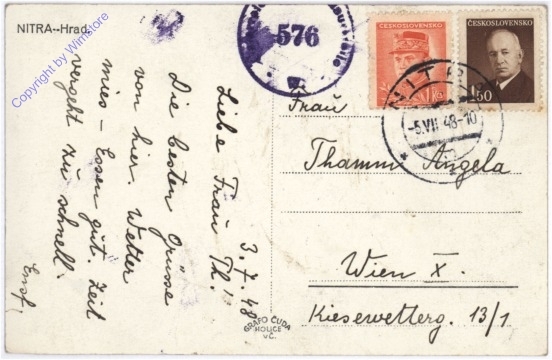 NITRA--Hrad.
576
ČESKOSLOVENSKO
1 Kčs
ČESKOSLOVENSKO
1.50
NITRA
-5.VII 48-10
3.7.48
Liebe Frau Th.!
Die besten Grüsse
von hier. Wetter
mies - Essen gut. Zeit
vergeht zu schnell.
Frau
Thamm Angela
Wien X.
Kiesewetterg. 13/1
GRAFO ČUDA
HOLICE
V Č.
Copyright by Winstore